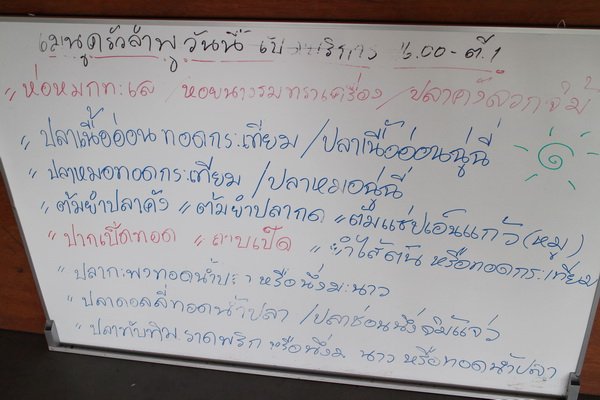 เมนูครัวลำพู วันนี้ เปิดบริการ 16.00 - ตี.1
" ห่อหมกทะเล / หอยนางรมทรงเครื่อง / ปลาคังลวกจิ้ม
" ปลาเนื้ออ่อนทอดกระเทียม / ปลาเนื้ออ่อนฉู่ฉี่
" ปลาหมอทอดกระเทียม / ปลาหมอฉู่ฉี่
" ต้มยำปลาคัง " ต้มยำปลากด " ต้มแซ่บเอ็นแก้ว (หมู)
" ปากเป็ดทอด " ลาบเป็ด " ยำไส้ตัน หรือทอดกระเทียม
" ปลากะพงทอดน้ำปลา หรือนึ่งมะนาว
" ปลาดอลลี่ทอดน้ำปลา / ปลาช่อนนึ่งจิ้มแจ่ว
" ปลาทับทิมราดพริก หรือนึ่งมะนาว หรือทอดน้ำปลา